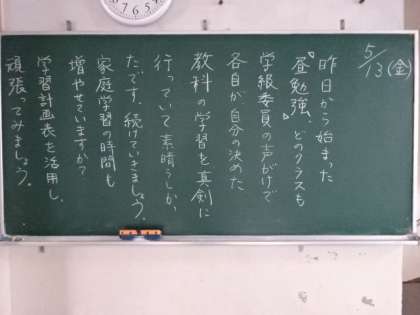 5/13(金)
昨日から始まった
『昼勉強』、どのクラスも
学級委員の声がけで
各自が、自分の決めた
教科の学習を真剣に
行っていて素晴らしか
たです。続けていきましょう。
家庭学習の時間も
増やせていますか?
学習計画表を活用し、
頑張ってみましょう。